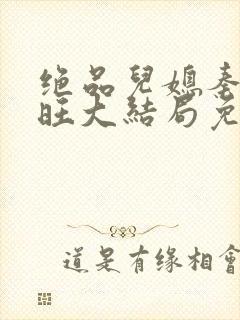 绝品兒媳秦
旺大結局免
道是有缘相會